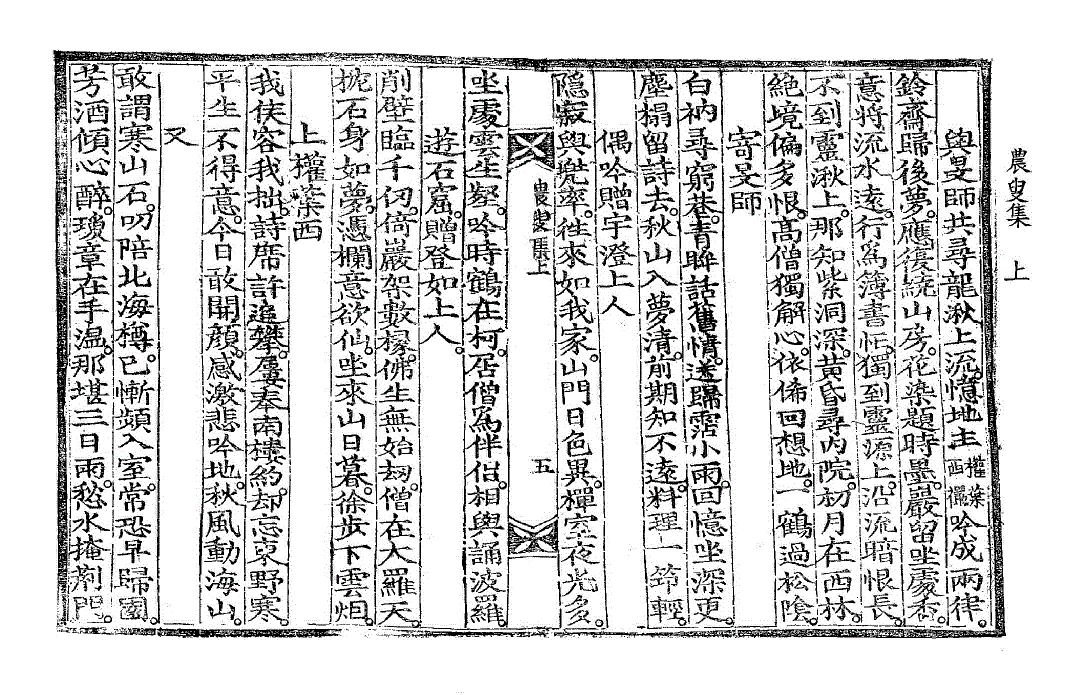 農叟集　上
與旻師共尋龍湫上流。憶地主權葉西儷吟成兩律。
鈴齋歸後夢。應復繞山房。花染題時墨。巖留坐處香。
意將流水遠。行爲簿書忙。獨到靈源上。沿流暗恨長。
不到靈湫上。那知紫洞深。黃昏尋內院。初月在西林。
絶境偏多恨。高僧獨解心。依俙回想地。一鶴過松陰。
寄旻師
白衲尋窮巷。靑眸話舊情。送歸霑小雨。回憶坐深更。
塵榻留詩去。秋山入夢淸。前期知不遠。料理一笻輕。
偶吟贈宇澄上人
隱寂與兜率。往來如我家。山門日色異。禪室夜光多。
農叟集上
五
坐處雲生壑。吟時鶴在柯。居僧爲伴侶。相與誦波羅。
遊石窟。贈登如上人。
削壁臨千仞。倚巖架數椽。佛生無始刼。僧在大羅天。
挽石身如夢。憑欄意欲仙。坐來山日暮。徐步下雲烟。
上權葉西
我俟容我拙。詩席許追攀。屢奉南樓約。却忘東野寒。
平生不得意。今日敢開顔。感激悲吟地。秋風動海山。
又
敢謂寒山石。叨陪北海樽。已慚頻入室。常恐早歸園。
芳酒傾心醉。瓊章在手溫。那堪三日雨。愁水掩荊門。